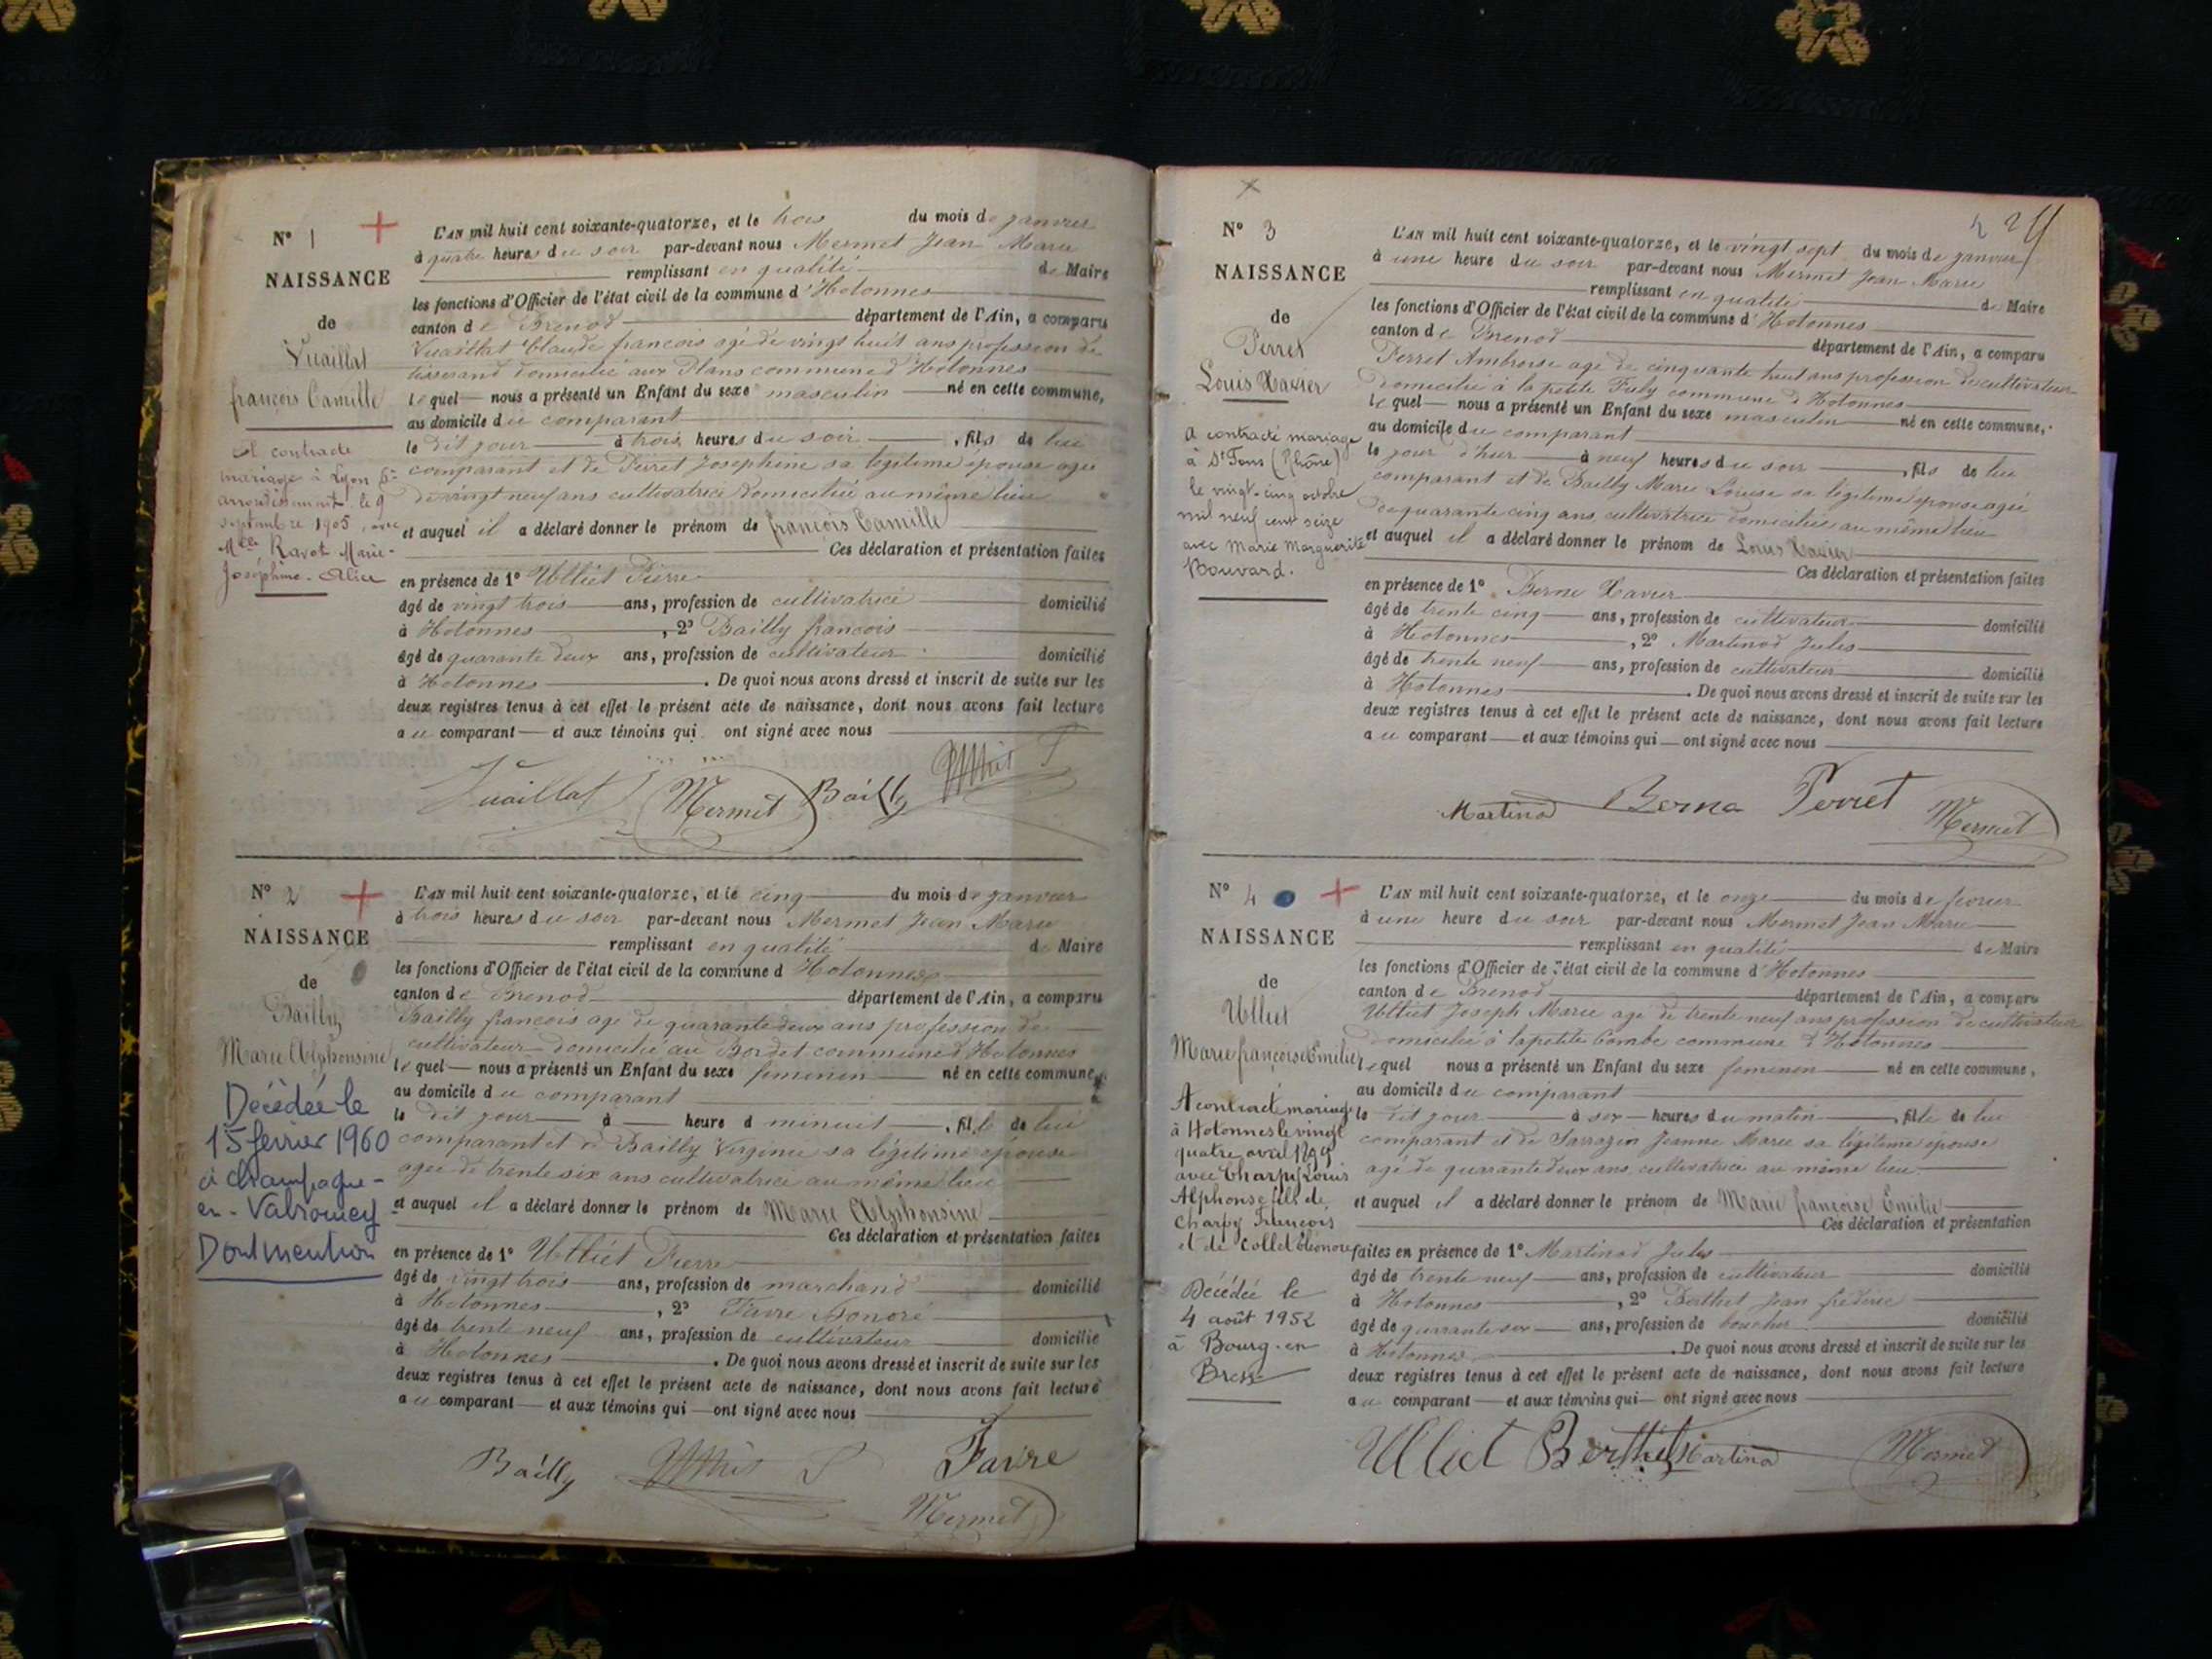 N° 1
NAISSANCE
de
Vuaillat
françois Camille
A contracté
mariage à Lyon 6e
arrondissement, le 9
septembre 1905, avec
Mlle Ravot Marie-
Joséphine-Alice
L'AN mil huit cent soixante-quatorze, et le trois du mois de janvier
à quatre heures du soir par-devant nous Mermet Jean Marie
remplissant en qualité de Maire
les fonctions d'Officier de l'état civil de la commune d'Hotonnes
canton de Brenod département de l'Ain, a comparu
Vuaillat Claude françois agé de vingt huit ans profession de
tisserand domicilié aux Plans commune d'Hotonnes
lequel nous a présenté un Enfant du sexe masculin né en cette commune,
au domicile du comparant
le dit jour à trois heures du soir, fils de lui
comparant et de Perret Josephine sa légitime épouse agée
de vingt neuf ans cultivatrice domiciliée au même lieu
et auquel il a déclaré donner le prénom de françois Camille
Ces déclaration et présentation faites
en présence de 1° Ulliet Pierre
âgé de vingt trois ans, profession de cultivatrice domicilié
à Hotonnes, 2° Bailly françois
âgé de quarante deux ans, profession de cultivateur domicilié
à Hotonnes. De quoi nous avons dressé et inscrit de suite sur les
deux registres tenus à cet effet le présent acte de naissance, dont nous avons fait lecture
au comparant et aux témoins qui ont signé avec nous
Vuaillat Mermet Bailly
N° 2
NAISSANCE
de
Bailly
Marie Alphonsine
Décédée le
15 février 1960
à Champagne-
en-Valromey
Dont mention
L'AN mil huit cent soixante-quatorze, et le cinq du mois de janvier
à trois heures du soir par-devant nous Mermet Jean Marie
remplissant en qualité de Maire
les fonctions d'Officier de l'état civil de la commune d Hotonnes
canton de Brenod département de l'Ain, a comparu
Bailly françois agé de quarante deux ans profession de
cultivateur domicilié au Bordet commune d'Hotonnes
lequel nous a présenté un Enfant du sexe femenin né en cette commune,
au domicile du comparant
le dit jour à heure d minuit, fille de lui
comparant et de Bailly Virginie sa légitime épouse
agée de trente six ans cultivatrice au même lieu
et auquel il a déclaré donner le prénom de Marie Alphonsine
Ces déclaration et présentation faites
en présence de 1° Ulliet Pierre
âgé de vingt trois ans, profession de marchand domicilié
à Hotonnes, 2° Favre Honoré
âgé de trente neuf ans, profession de cultivateur domicilié
à Hotonnes. De quoi nous avons dressé et inscrit de suite sur les
deux registres tenus à cet effet le présent acte de naissance, dont nous avons fait lecture
au comparant et aux témoins qui ont signé avec nous
Bailly Favre
Mermet
N° 3
NAISSANCE
de
Perret
Louis Xavier
A contracté mariage
à St Fons (Rhône)
le vingt-cinq octobre
mil neuf cent seize
avec Marie Marguerite
Bouvard.
L'AN mil huit cent soixante-quatorze, et le vingt sept du mois de janvier
à une heure du soir par-devant nous Mermet Jean Marie
remplissant en qualité de Maire
les fonctions d'Officier de l'état civil de la commune d'Hotonnes
canton de Brenod département de l'Ain, a comparu
Perret Ambroise agé de cinquante huit ans profession de cultivateur
domicilié à la petite commune d'Hotonnes
lequel nous a présenté un Enfant du sexe masculin né en cette commune,
au domicile du comparant
le jour d'hier à neuf heures du soir, fils de lui
comparant et de Bailly Marie Louise sa légitime épouse agée
de quarante cinq ans, cultivatrice domiciliée au même lieu
et auquel il a déclaré donner le prénom de Louis Xavier
Ces déclaration et présentation faites
en présence de 1° Berne Xavier
âgé de trente cinq ans, profession de cultivateur domicilié
à Hotonnes, 2° Martinod Jules
âgé de trente neuf ans, profession de cultivateur domicilié
à Hotonnes. De quoi nous avons dressé et inscrit de suite sur les
deux registres tenus à cet effet le présent acte de naissance, dont nous avons fait lecture
au comparant et aux témoins qui ont signé avec nous
Martinod Berne Perret Mermet
N° 4
NAISSANCE
de
Ulliet
Marie françoise Emilie
A contracté mariage
à Hotonnes le vingt
quatre avril 1899
avec Charpy Louis
Alphonse fils de
Charpy François
et de Collet Eléonore
Décédée le
4 août 1952
à Bourg-en
Bresse
L'AN mil huit cent soixante-quatorze, et le onze du mois de février
à une heure du soir par-devant nous Mermet Jean Marie
remplissant en qualité de Maire
les fonctions d'Officier de l'état civil de la commune d'Hotonnes
canton de Brenod département de l'Ain, a comparu
Ulliet Joseph Marie agé de trente neuf ans profession de cultivateur
domicilié à la petite Combe commune d'Hotonnes
lequel nous a présenté un Enfant du sexe femenin né en cette commune,
au domicile du comparant
le dit jour à six heures du matin, fille de lui
comparant et de Sarrazin Jeanne Marie sa légitime épouse
agé de quarante deux ans cultivatrice au même lieu
et auquel il a déclaré donner le prénom de Marie françoise Emilie
Ces déclaration et présentation
faites en présence de 1° Martinod Jules
âgé de trente neuf ans, profession de cultivateur domicilié
à Hotonnes, 2° Berthet Jean fréderic
âgé de quarante six ans, profession de boucher domicilié
à Hotonnes. De quoi nous avons dressé et inscrit de suite sur les
deux registres tenus à cet effet le présent acte de naissance, dont nous avons fait lecture
au comparant et aux témoins qui ont signé avec nous
Ulliet Berthet Martinod Mermet